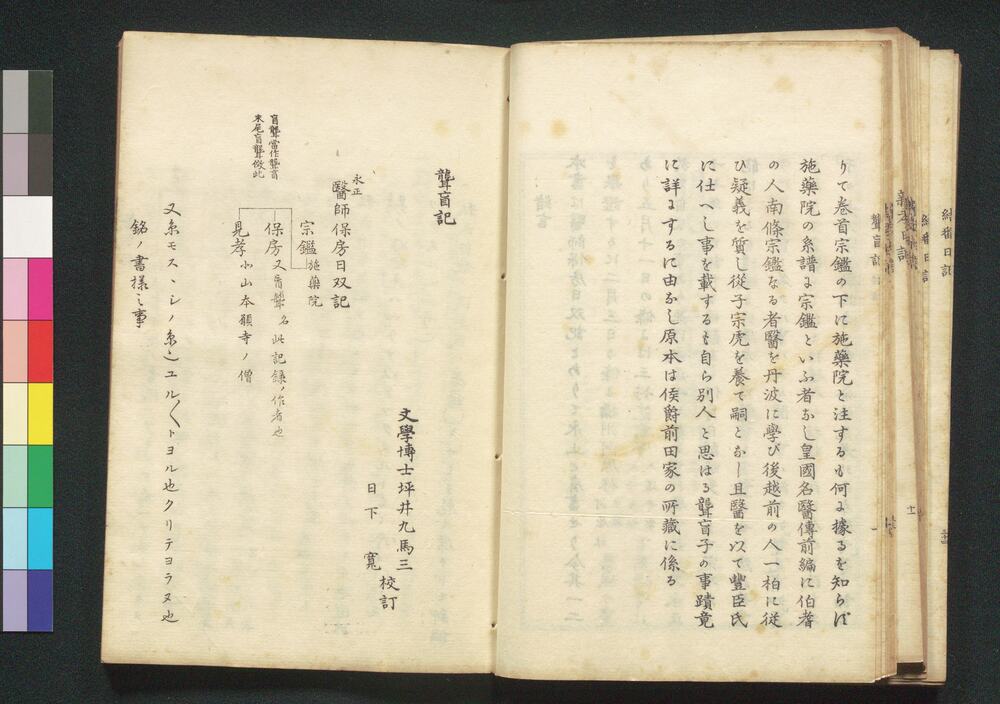 りて巻首宗鑑の下に施藥院と注するも何に據るを知らず
施藥院の系譜に宗鑑といふ者なし皇國名醫傳前編に伯耆
の人南條宗鑑なる者醫を丹波に學び後越前の人一栢に從
ひ疑義を質し從子宗虎を養て嗣となし且醫を以て豐臣氏
に仕へし事を載するも自ら別人と思はる聾盲子の事蹟竟
に詳にするに由なし原本は侯爵前田家の所藏に係る
聾盲記
文學博士坪井九馬三
日下寬
校訂
永正
醫師保房日双記
盲聾當作聾盲
末尾盲聾倣此
宗鑑施藥院
保房又盲聾名此記錄ノ作者也
見孝小山本願寺ノ僧
又糸モス、シノ糸ニユル〱トヨル也クリテヨラヌ也
銘ノ書樣之事
聾盲記
一